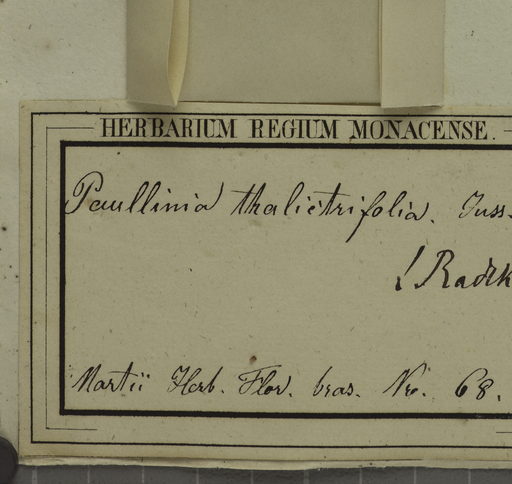 HERBARIUM REGIUM MONACENSE.
Paullinia thalictrifolia. Juss.
! Radlk
Martii Herb. Flor. bras. No. 68.